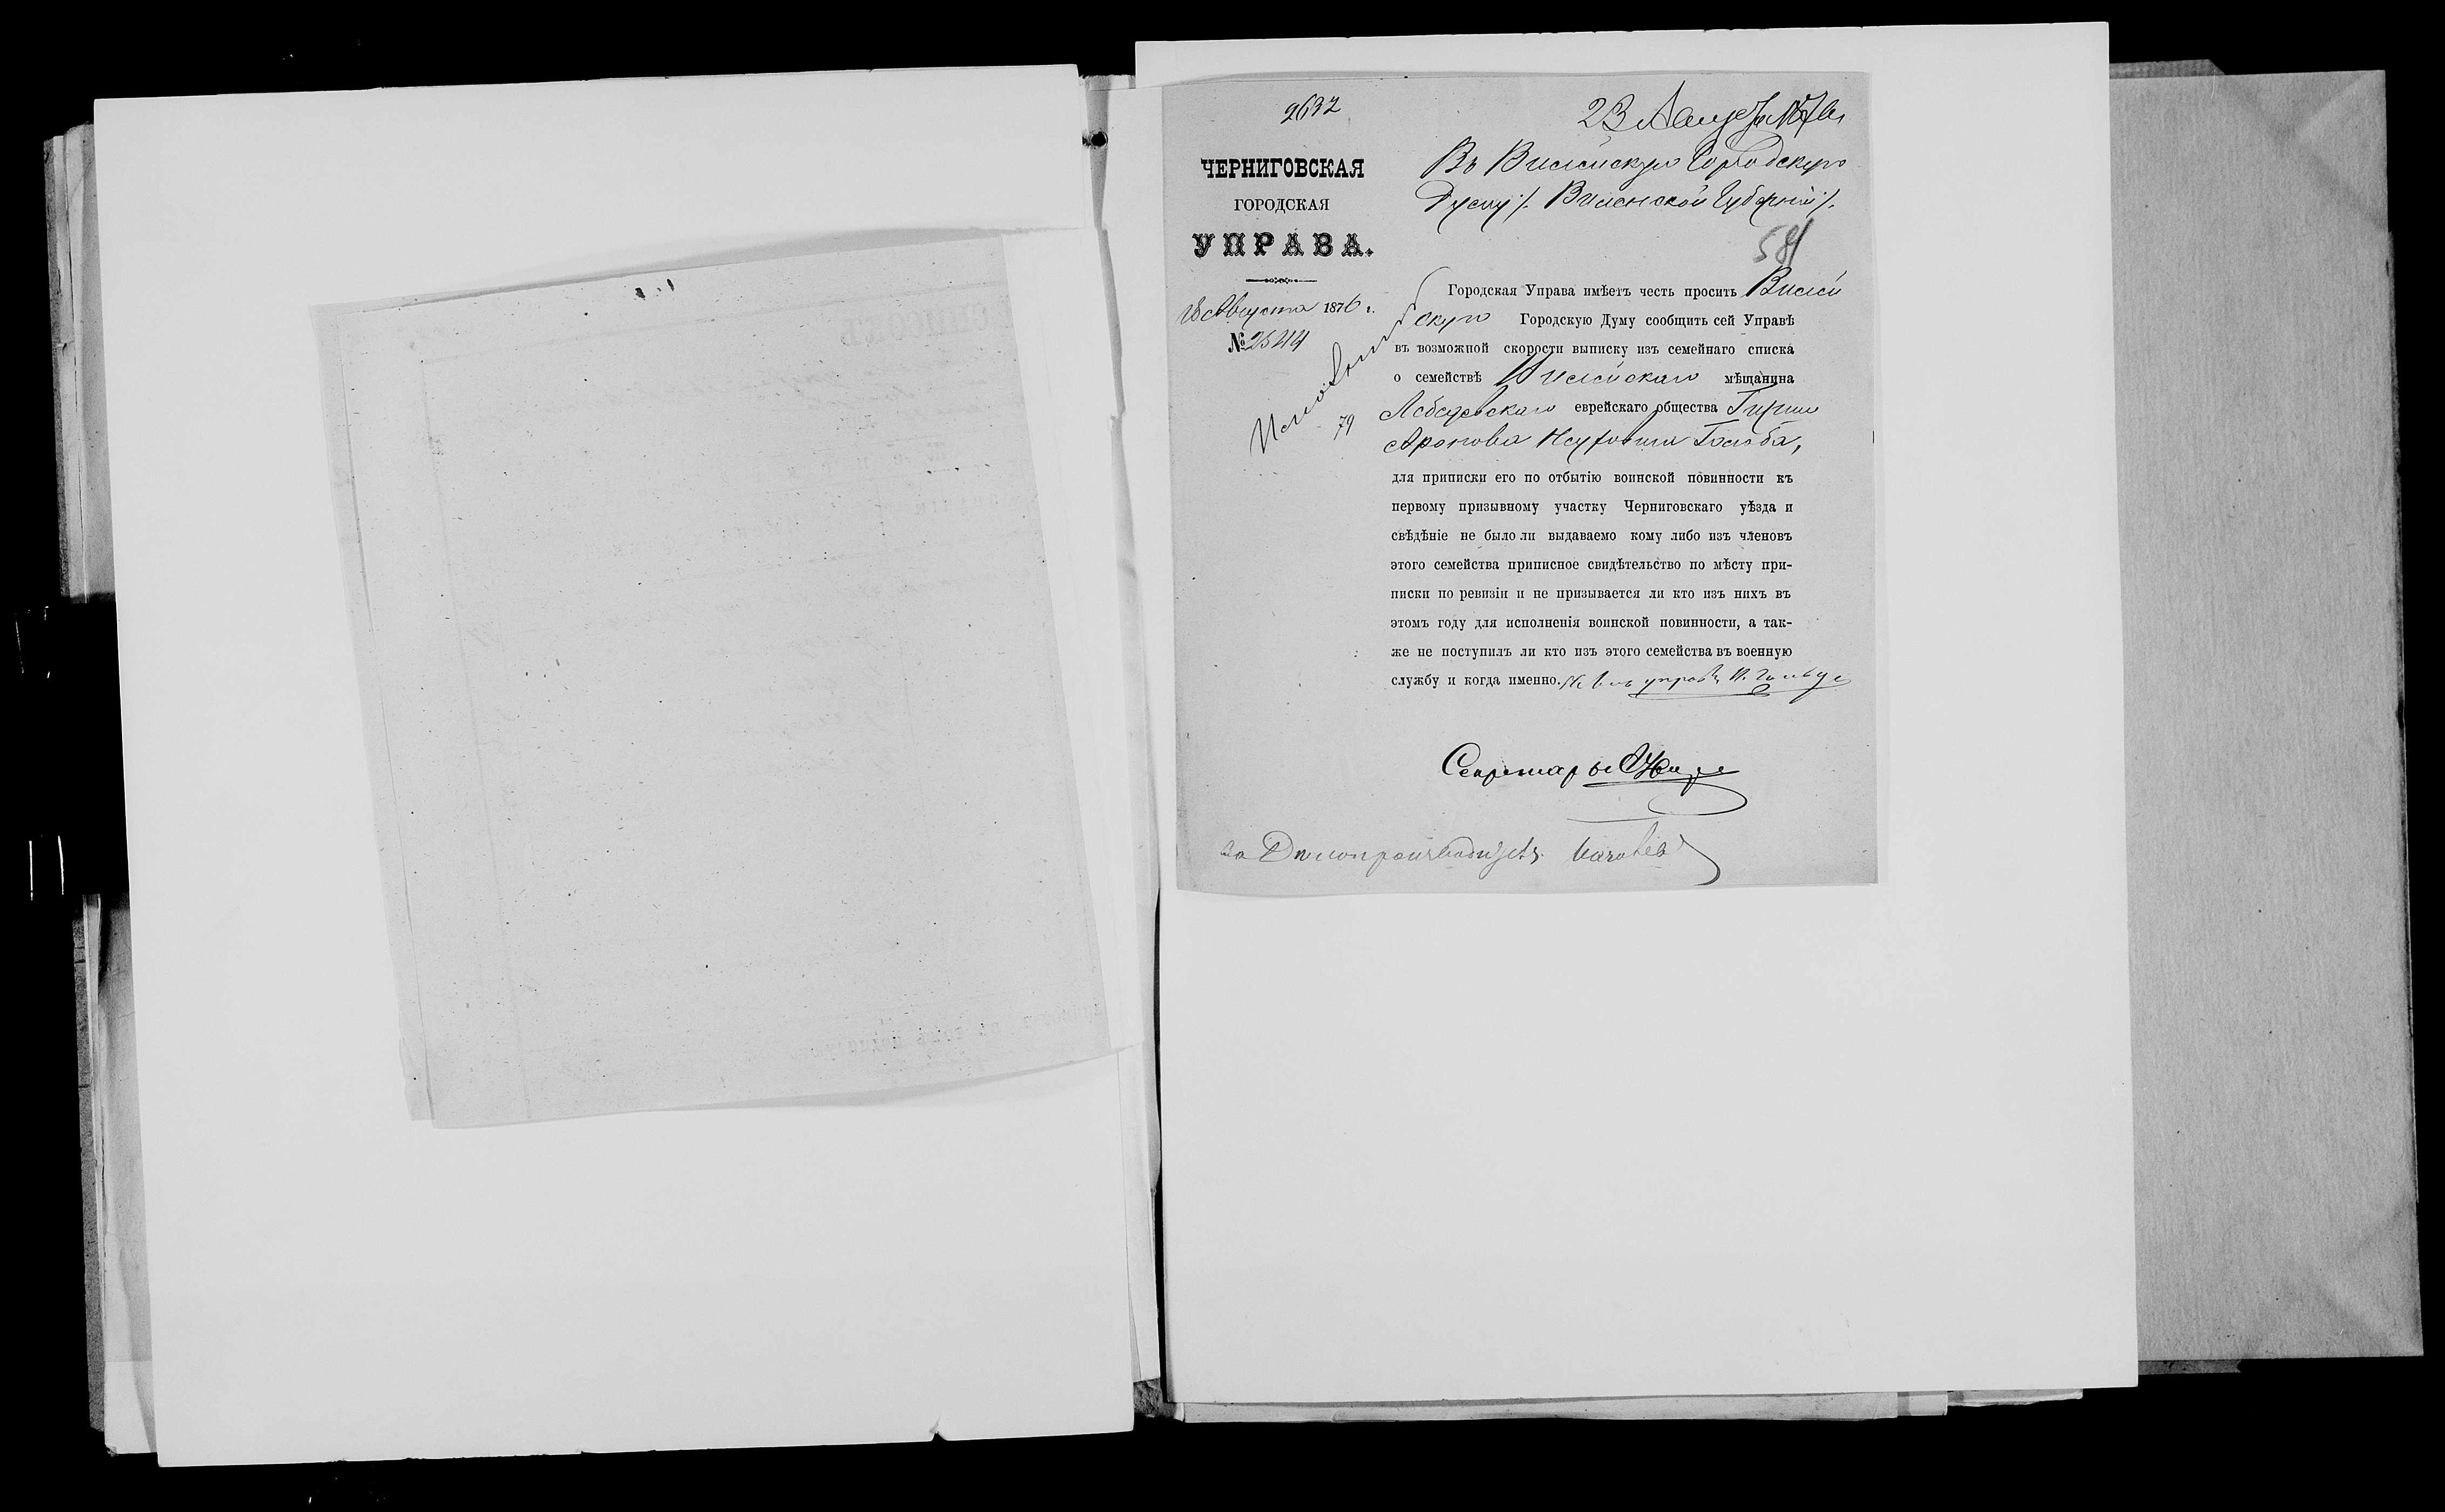 2632
23 Августа 1876
ЧЕРНИГОВСКАЯ
ГОРОДСКАЯ
УПРАВА.
Августа 1876 г.
№ 2544
Въ Вилейскую Городскую
Думу /. Виленской Губерніи /.
581
Городская Управа имѣетъ честь просить Вилей
скую Городскую Думу сообщить сей Управѣ
въ возможной скорости выписку изъ семейнаго списка
о семействѣ Вилейскаго мѣщанина
Лебедевскаго еврейскаго общества Гирши
Аронова
для приписки его по отбытію воинской повинности къ
первому призывному участку Черниговскаго уѣзда и
свѣдѣніе не было ли выдаваемо кому либо изъ членовъ
этого семейства приписное свидѣтельство по мѣсту при-
писки по ревизіи и не призывается ли кто изъ нихъ въ
этомъ году для исполненія воинской повинности, а так-
же не поступилъ ли кто изъ этого семейства въ военную
службу и когда именно.
79
Секретарь
За Дѣлопроизводителя